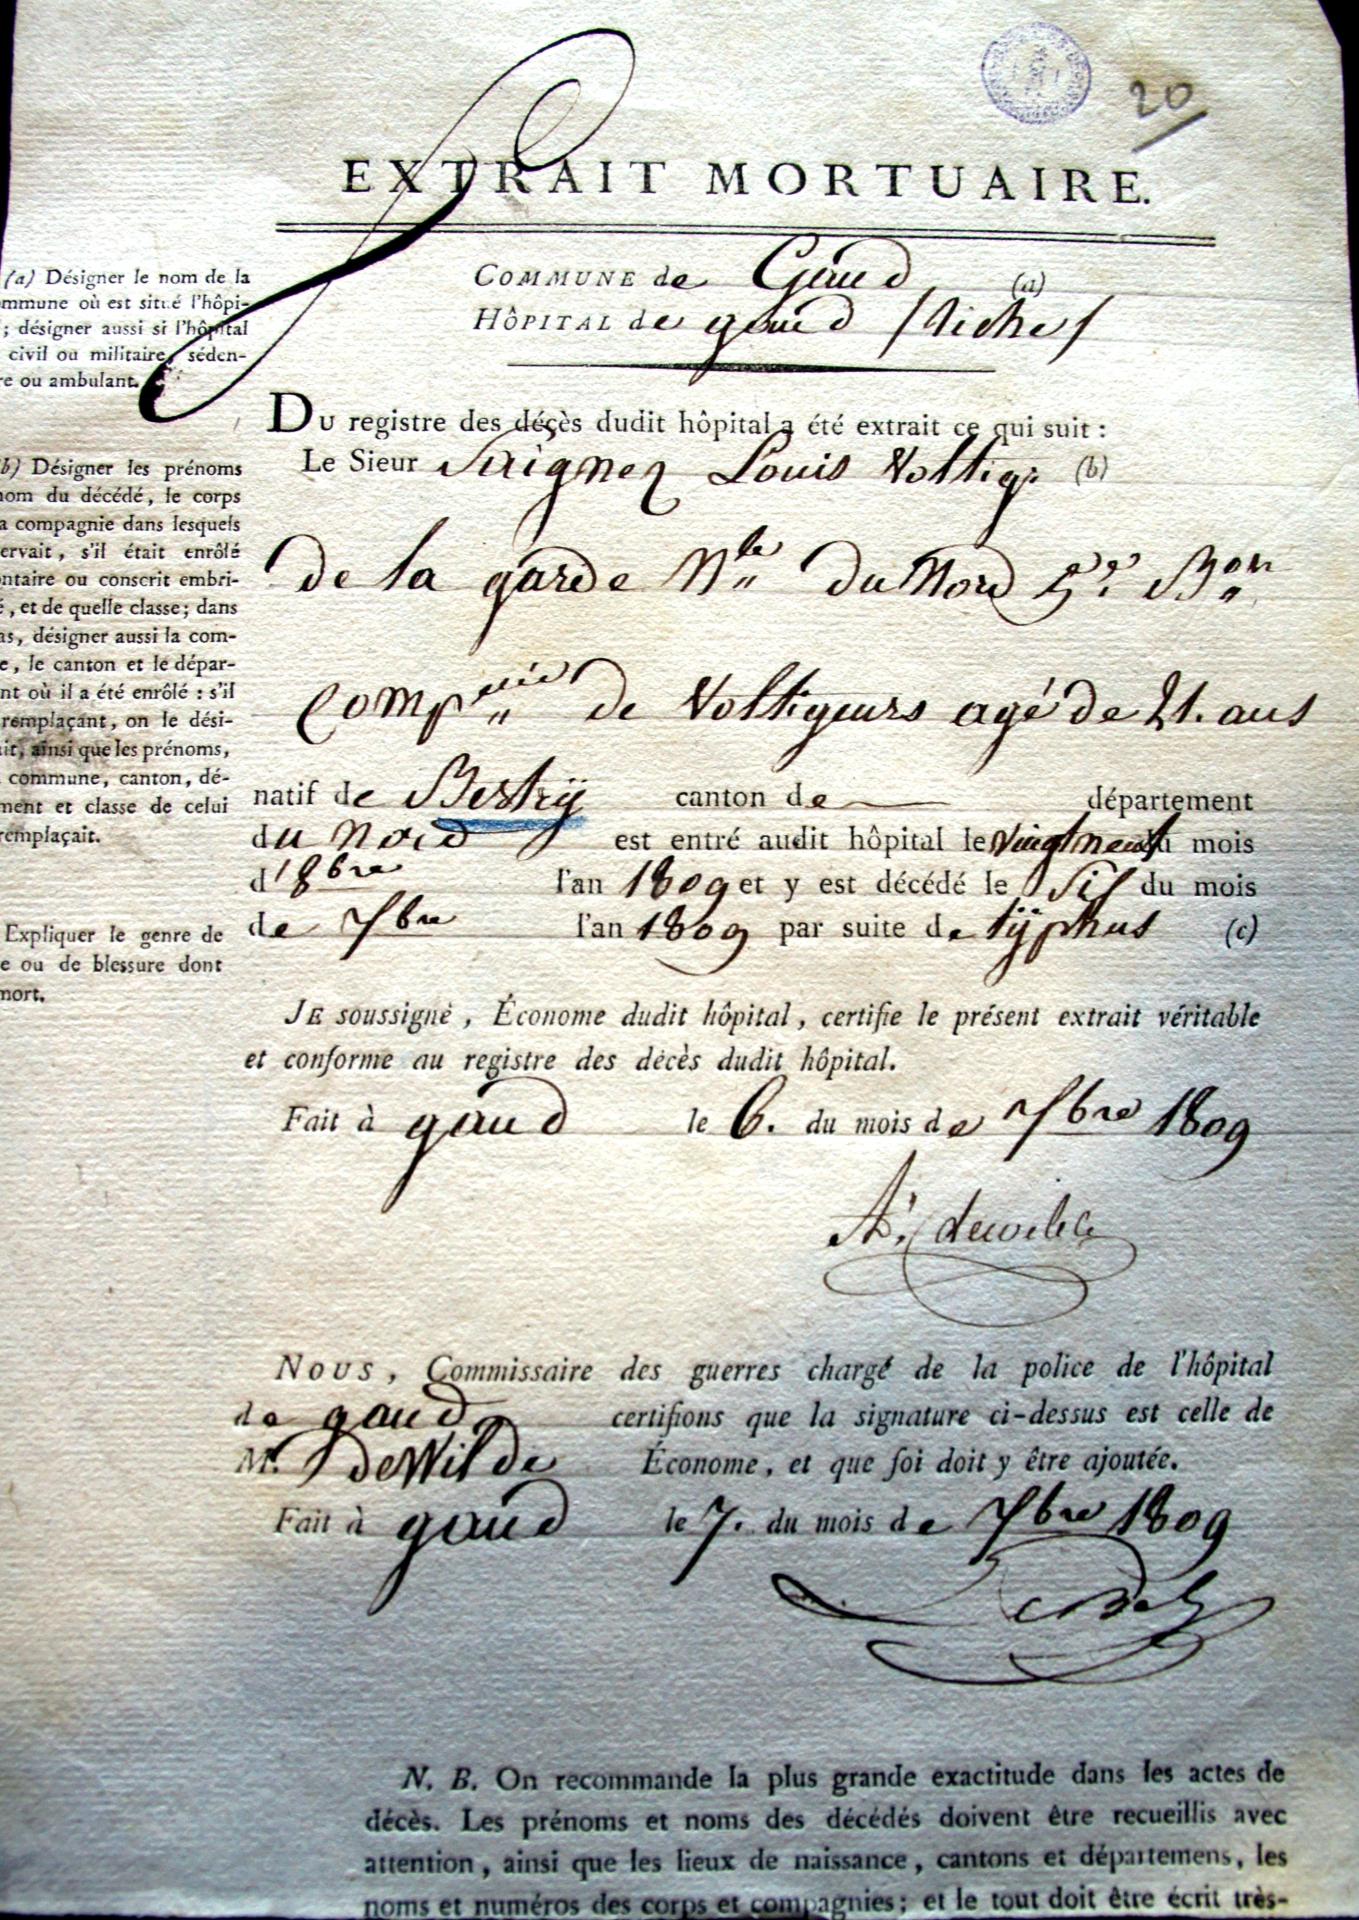 20
EXTRAIT MORTUAIRE.
COMMUNE de Gand (a)
HÔPITAL de gand
(a) Désigner le nom de la
ommune où est situé l'hôpi-
; désigner aussi si l'hôpital
civil ou militaire, séden-
re ou ambulant.
DU registre des décès dudit hôpital a été extrait ce qui suit :
Le Sieur Louis Voltig: (b)
de la garde Nle du Nord 5e Bon
Compnie de Voltigeurs agé de 21. ans
b) Désigner les prénoms
nom du décédé, le corps
a compagnie dans lesquels
ervait, s'il était enrôlé
ontaire ou conscrit embri-
é, et de quelle classe; dans
as, désigner aussi la com-
e, le canton et le dépar-
nt où il a été enrôlé : s'il
remplaçant, on le dési-
it, ainsi que les prénoms,
commune, canton, dé-
ment et classe de celui
remplaçait.
natif de Bestrÿ canton de — département
du Nord est entré audit hôpital le vingt neuf du mois
d'8bre l'an 1809 et y est décédé le Six du mois
de 7bre l'an 1809 par suite de tÿphus (c)
Expliquer le genre de
e ou de blessure dont
mort.
JE soussigné, Économe dudit hôpital, certifie le présent extrait véritable
et conforme au registre des décès dudit hôpital.
Fait à gand le 6. du mois de 7bre 1809
dewilde
NOUS, Commissaire des guerres chargé de la police de l'hôpital
de gand certifions que la signature ci-dessus est celle de
M. deWilde Économe, et que foi doit y être ajoutée.
Fait à gand le 7. du mois de 7bre 1809
N. B. On recommande la plus grande exactitude dans les actes de
décès. Les prénoms et noms des décédés doivent être recueillis avec
attention, ainsi que les lieux de naissance, cantons et départemens, les
noms et numéros des corps et compagnies; et le tout doit être écrit très-